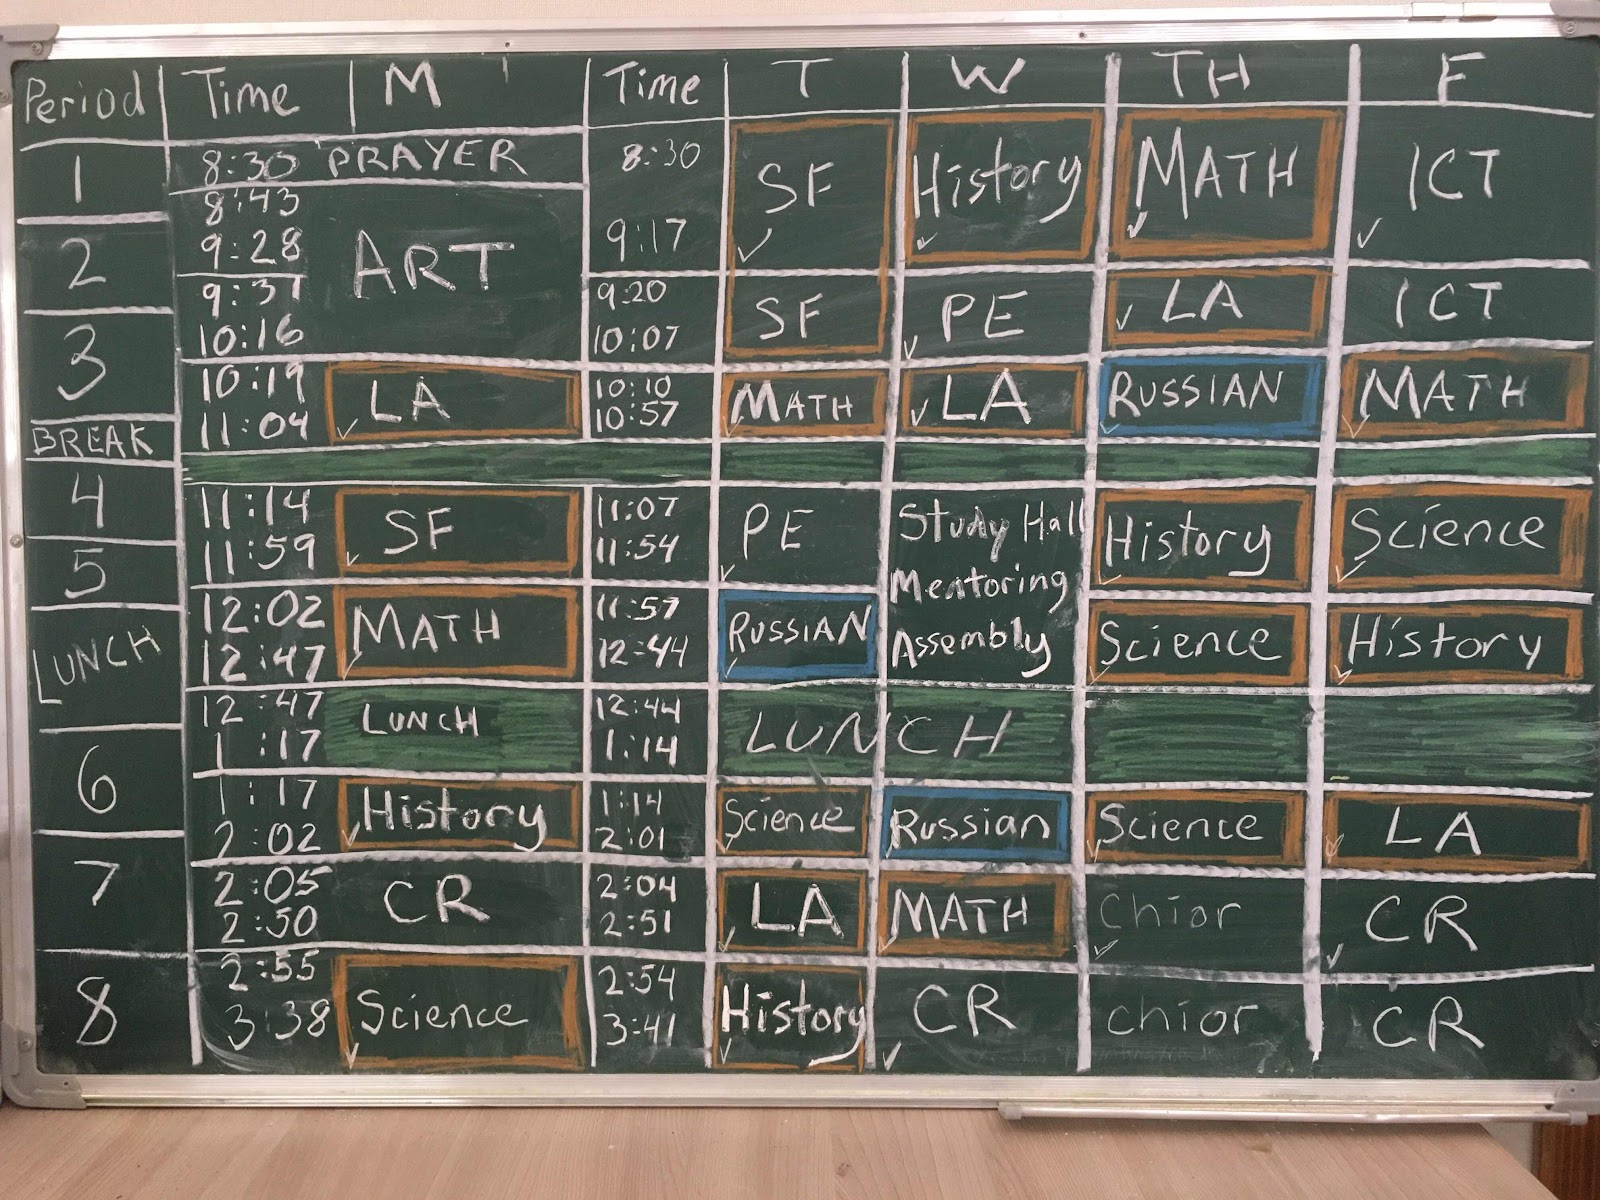 Period Time M Time T W TH F
1 8:30 PRAYER 8:30 SF History MATH ICT
8:43
2 9:28 ART 9:17
9:37 9:20 SF PE LA ICT
10:16 10:07
3 10:19 LA 10:10 MATH LA RUSSIAN MATH
11:04 10:57
BREAK
4 11:14 SF 11:07 PE Study Hall History Science
11:59 11:54
5 Mentoring
12:02 MATH 11:57 RUSSIAN Assembly Science History
12:47 12:44
LUNCH 12:47 LUNCH 12:44 LUNCH
1:17 1:14
6 1:17 History 1:14 Science Russian Science LA
2:02 2:01
7 2:05 CR 2:04 LA MATH Chior CR
2:50 2:51
8 2:55 Science 2:54 History CR chior CR
3:38 3:41